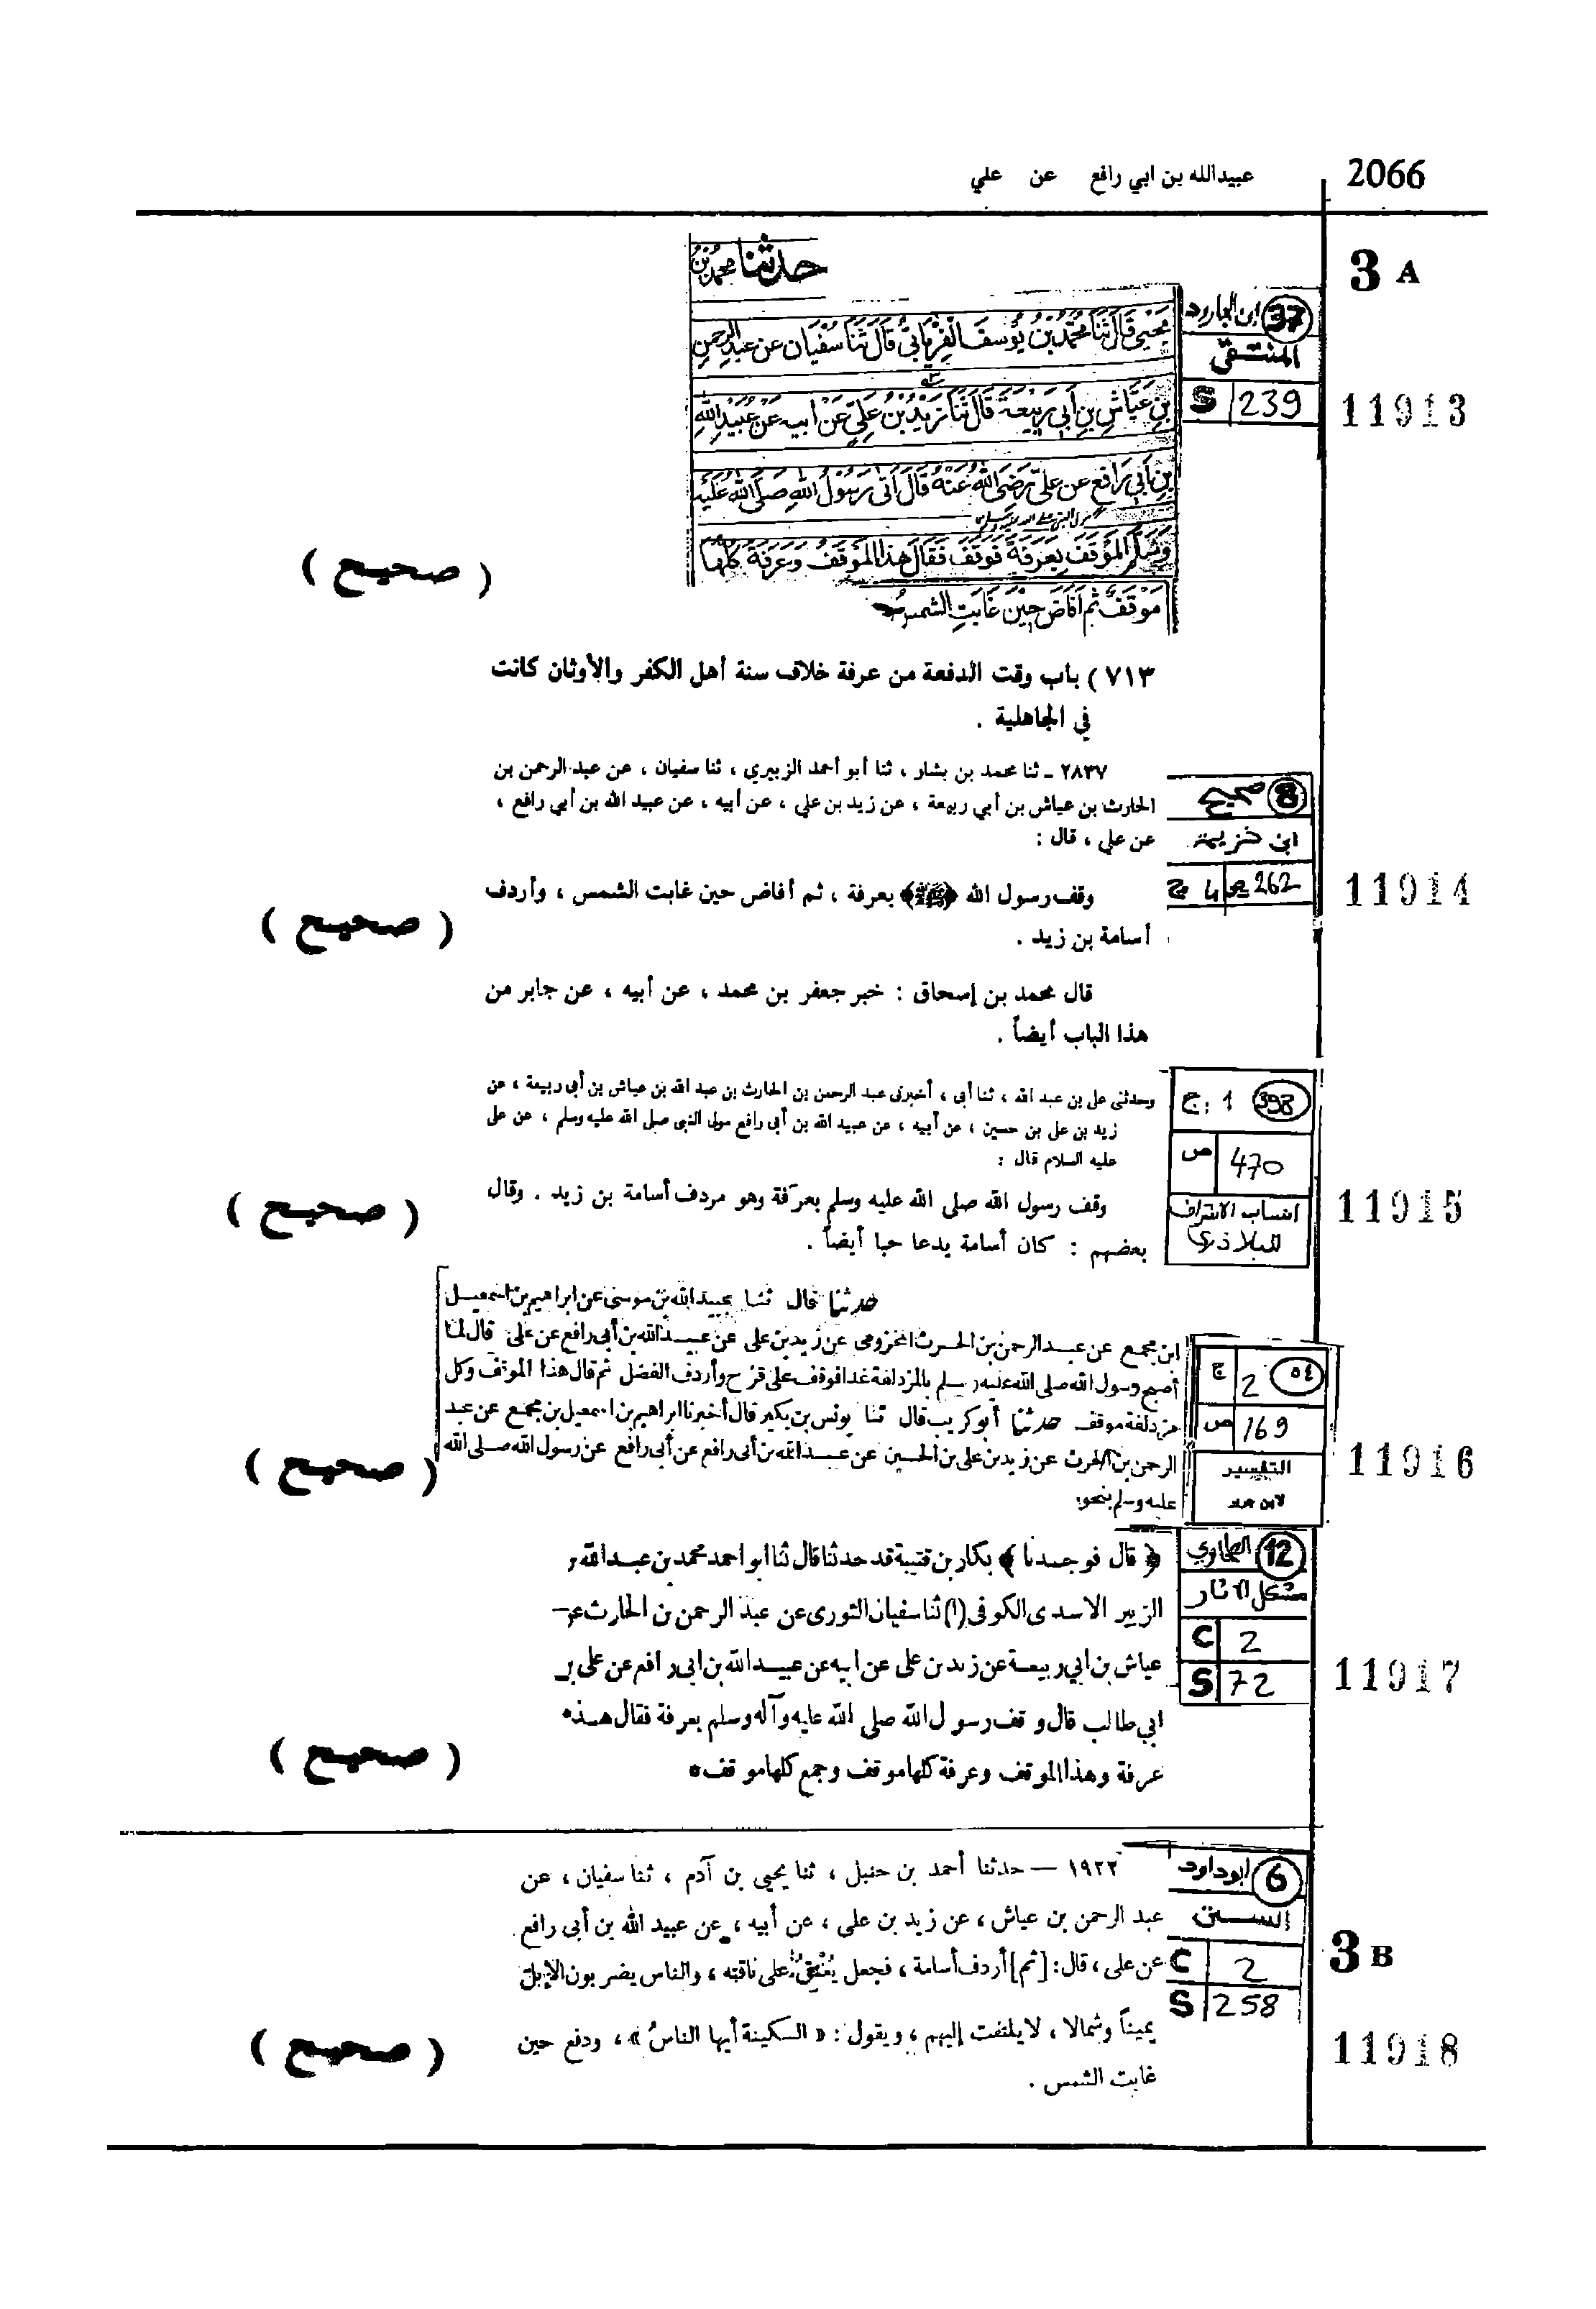 2066
عبيدالله بن ابي رافع عن علي
3 A
حدثنا محمد بن
يحيى قال ثنا محمد بن يوسف الفريابي قال ثنا سفيان عن عبد الرحمن
بن عياش بن أبي ربيعة قال ثنا زيد بن علي عن أبيه عن عبيد الله
بن أبي رافع عن علي رضي الله عنه قال أتى رسول الله صلى الله عليه
وسلم الموقف بعرفة فوقف فقال هذا الموقف وعرفة كلها
موقف ثم أفاض حين غابت الشمس
37 ابن الجارود
المنتقى
S 239
11913
( صحيح )
٧١٣ ) باب وقت الدفعة من عرفة خلاف سنة أهل الكفر والأوثان كانت
في الجاهلية .
٢٨٣٧ ـ ثنا محمد بن بشار ، ثنا أبو أحمد الزبيري ، ثنا سفيان ، عن عبد الرحمن بن
الحارث بن عياش بن أبي ربيعة ، عن زيد بن علي ، عن أبيه ، عن عبيد الله بن أبي رافع ،
عن علي ، قال :
وقف رسول الله ﴿ﷺ﴾ بعرفة ، ثم أفاض حين غابت الشمس ، وأردف
أسامة بن زيد .
قال محمد بن إسحاق : خبر جعفر بن محمد ، عن أبيه ، عن جابر من
هذا الباب أيضاً .
8 صحيح
ابن خزيمة
ج 4 ص 262
11914
( صحيح )
وحدثني على بن عبد الله ، ثنا أبى ، أخبرنى عبد الرحمن بن الحارث بن عبد الله بن عياش بن أبى ربيعة ، عن
زيد بن على بن حسين ، عن أبيه ، عن عبيد الله بن أبى رافع مولى النبى صلى الله عليه وسلم ، عن على
عليه السلام قال :
وقف رسول الله صلى الله عليه وسلم بعرَفة وهو مردف أسامة بن زيد . وقال
بعضهم : كان أسامة يدعا حبا أيضاً .
398 1 ج
470 ص
انساب الاشراف
للبلاذري
11915
( صحيح )
حدثنا قال ثنا عبيد الله بن موسى عن ابراهيم بن اسمعيل
ابن مجمع عن عبد الرحمن بن الحرث المخزومى عن زيد بن على عن عبيد الله بن أبى رافع عن على قال لما
أصبح رسول الله صلى الله عليه وسلم بالمزدلفة غدا فوقف على قزح وأردف الفضل ثم قال هذا الموقف وكل
مزدلفة موقف حدثنا أبو كريب قال ثنا يونس بن بكير قال أخبرنا ابراهيم بن اسمعيل بن مجمع عن عبد
الرحمن بن الحرث عن زيد بن على بن الحسين عن عبيد الله بن أبى رافع عن أبى رافع عن رسول الله صلى الله
عليه وسلم بنحوه
٥٤ 2 ج
169 ص
التفسير
11916
( صحيح )
﴿ قال فوجدنا ﴾ بكار بن قتيبة قد حدثنا قال ثنا ابو احمد محمد بن عبد الله
الزبير الاسدى الكوفى (١) ثنا سفيان الثورى عن عبد الرحمن بن الحارث
عياش بن ابى ربيعة عن زيد بن على عن ابيه عن عبيد الله بن ابى رافع عن على
ابي طالب قال وقف رسول الله صلى الله عليه وآله وسلم بعرفة فقال هذه
عرفة وهذا الموقف وعرفة كلها موقف وجمع كلها موقف
12 الطحاوي
مشكل الاثار
C 2
S 72
11917
( صحيح )
3 B
١٩٢٢ — حدثنا أحمد بن حنبل ، ثنا يحيى بن آدم ، ثنا سفيان ، عن
عبد الرحمن بن عياش ، عن زيد بن على ، عن أبيه ، عن عبيد الله بن أبى رافع
عن على ، قال : [ثم] أردف أسامة ، فجعل يُعْنِقُ على ناقته ، والناس يضربون الإبل
يميناً وشمالا ، لا يلتفت إليهم ، ويقول : « السكينة أيها الناسُ » ، ودفع حين
غابت الشمس .
6 ابوداود
السنن
C 2
S 258
11918
( صحيح )